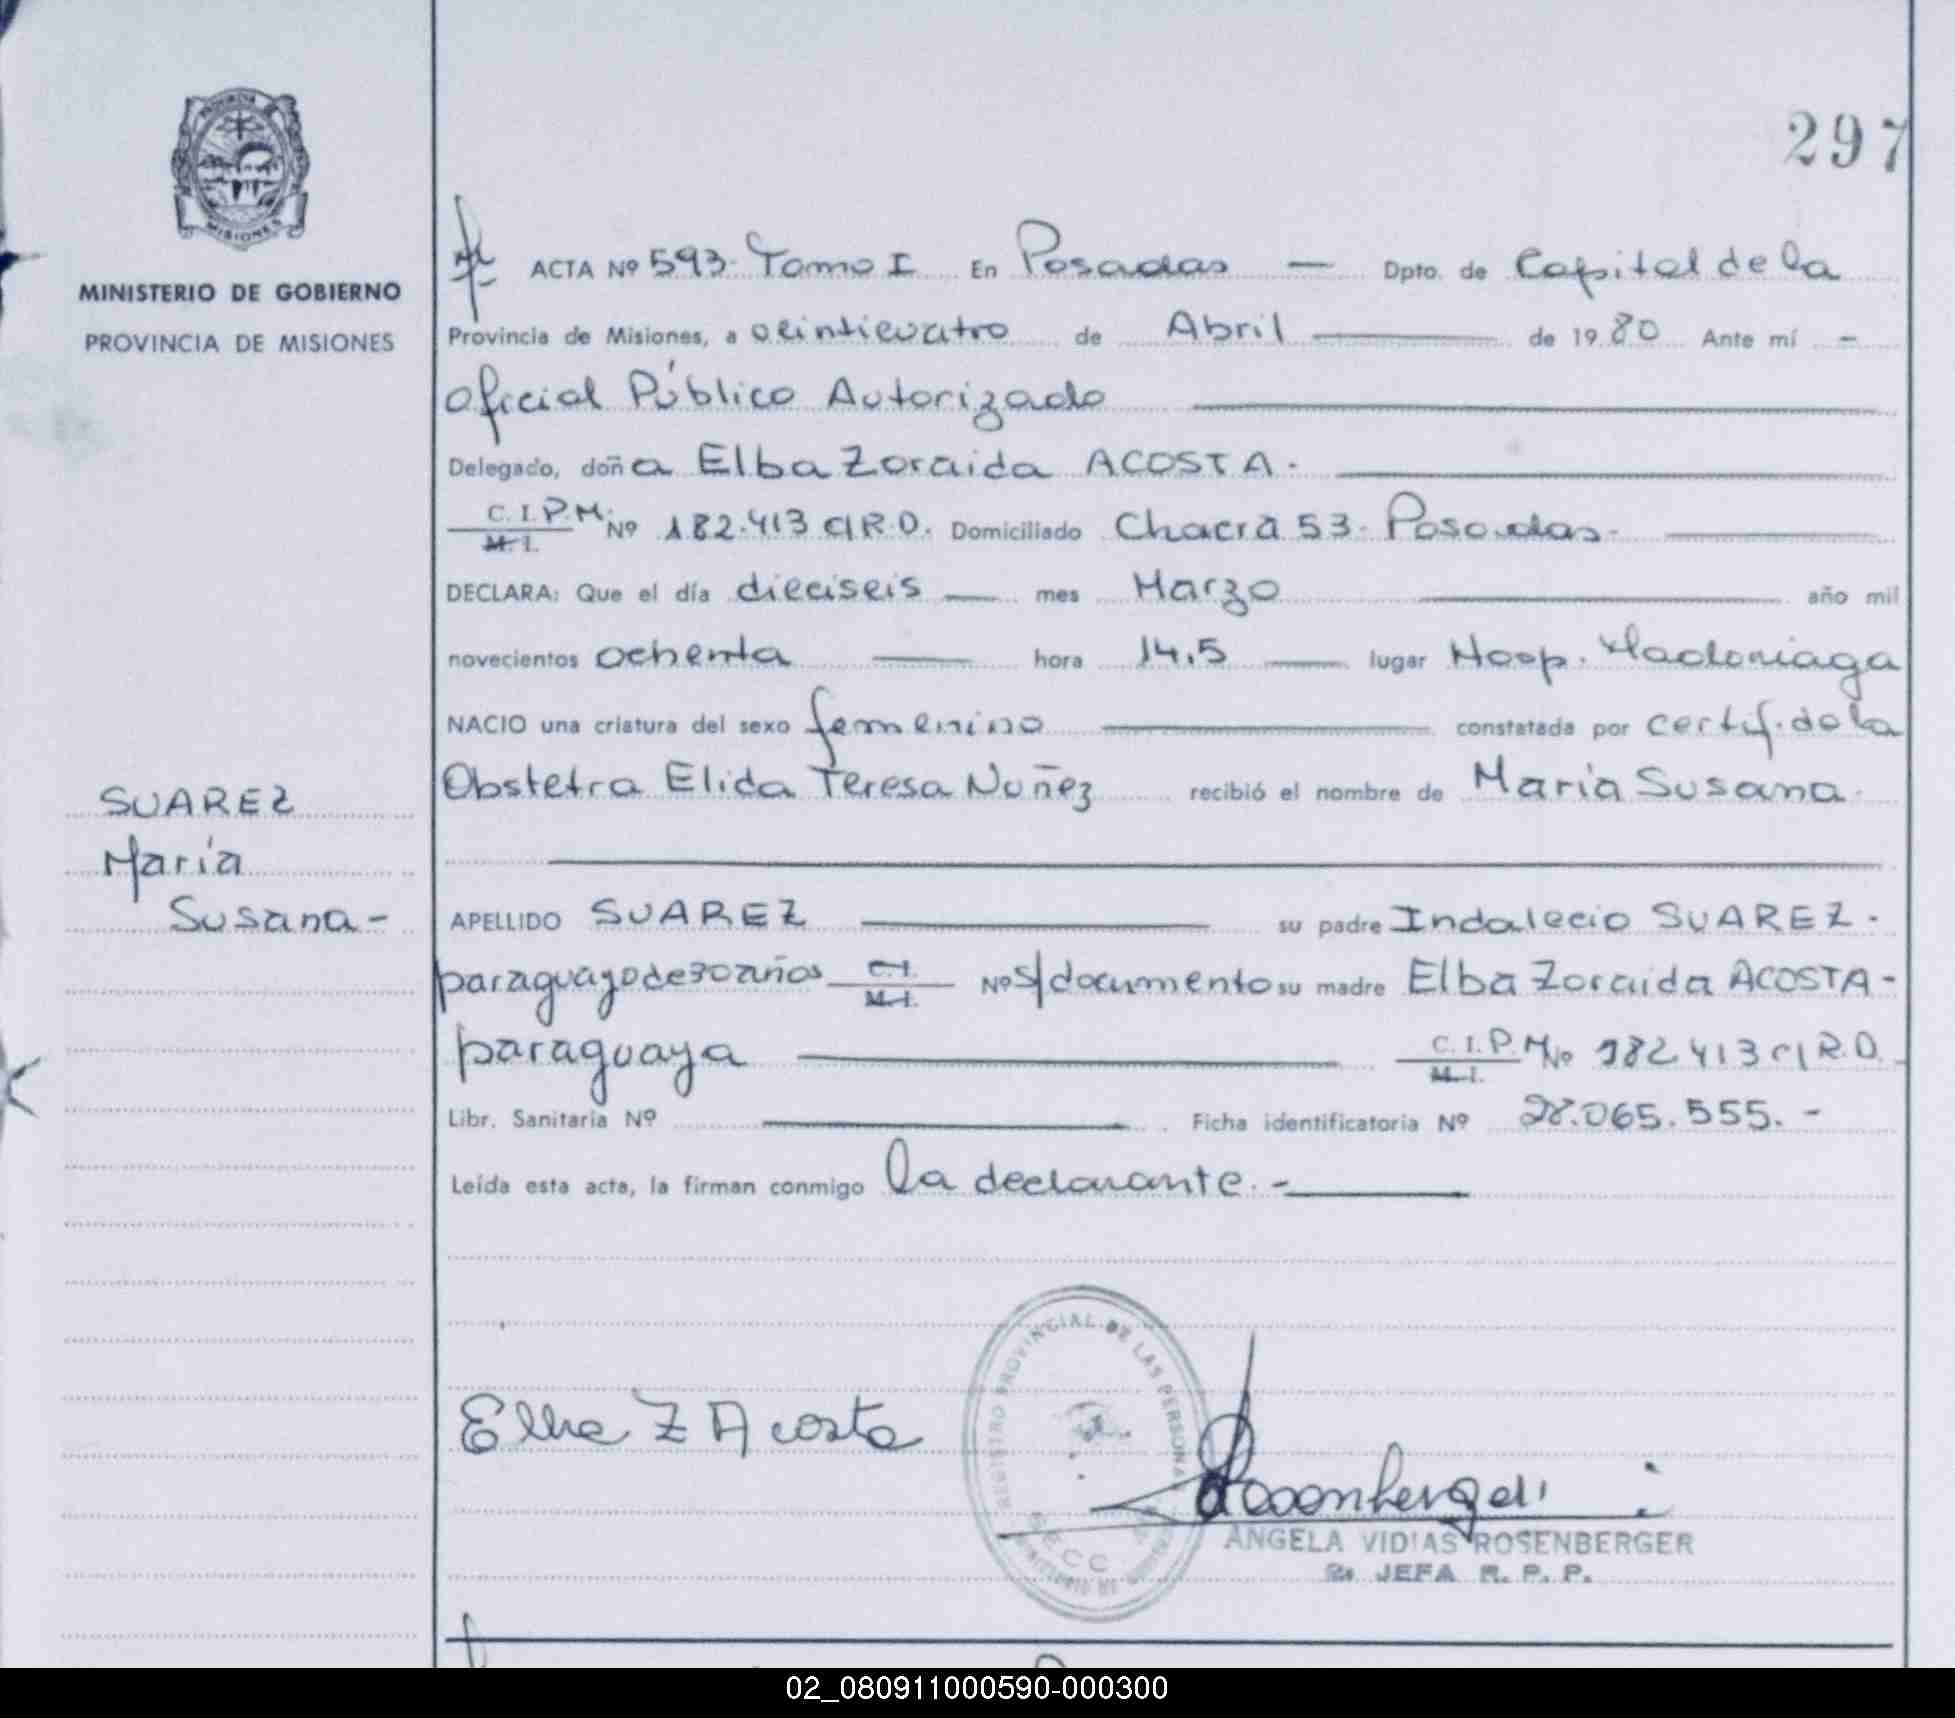 297
PROVINCIA DE
MISIONES
MINISTERIO DE GOBIERNO
PROVINCIA DE MISIONES
ACTA Nº 593. Tomo I En Posadas — Dpto. de Capital de la
Provincia de Misiones, a veintícuatro de Abril — de 1980 Ante mí –
Oficial Público Autorizado
Delegado, doña Elba Zoraida ACOSTA.
C. I. P. M. M. I. Nº 182.413 C/R.D. Domiciliado Chacra 53. Posadas.
DECLARA: Que el día dieciseis — mes Marzo — año mil
novecientos ochenta — hora 14,5 — lugar Hosp. Madariaga
NACIO una criatura del sexo femenino — constatada por certif. de la
Obstetra Elida Teresa Nuñez recibió el nombre de María Susana.
SUAREZ
María
Susana-
APELLIDO SUAREZ — su padre Indalecio SUAREZ.
paraguayo de 30 años C. I. M. I. Nº S/documento su madre Elba Zoraida ACOSTA-
paraguaya — C. I. P. M. M. I. Nº 182413 C/R.D.
Libr. Sanitaria Nº — Ficha identificatoria Nº 28.065.555. –
Leída esta acta, la firman conmigo la declarante. –
Elba Z Acosta
REGISTRO PROVINCIAL DE LAS PERSONAS
SECC
Rosenberger
ANGELA VIDIAS ROSENBERGER
2a JEFA R. P. P.
02_080911000590-000300